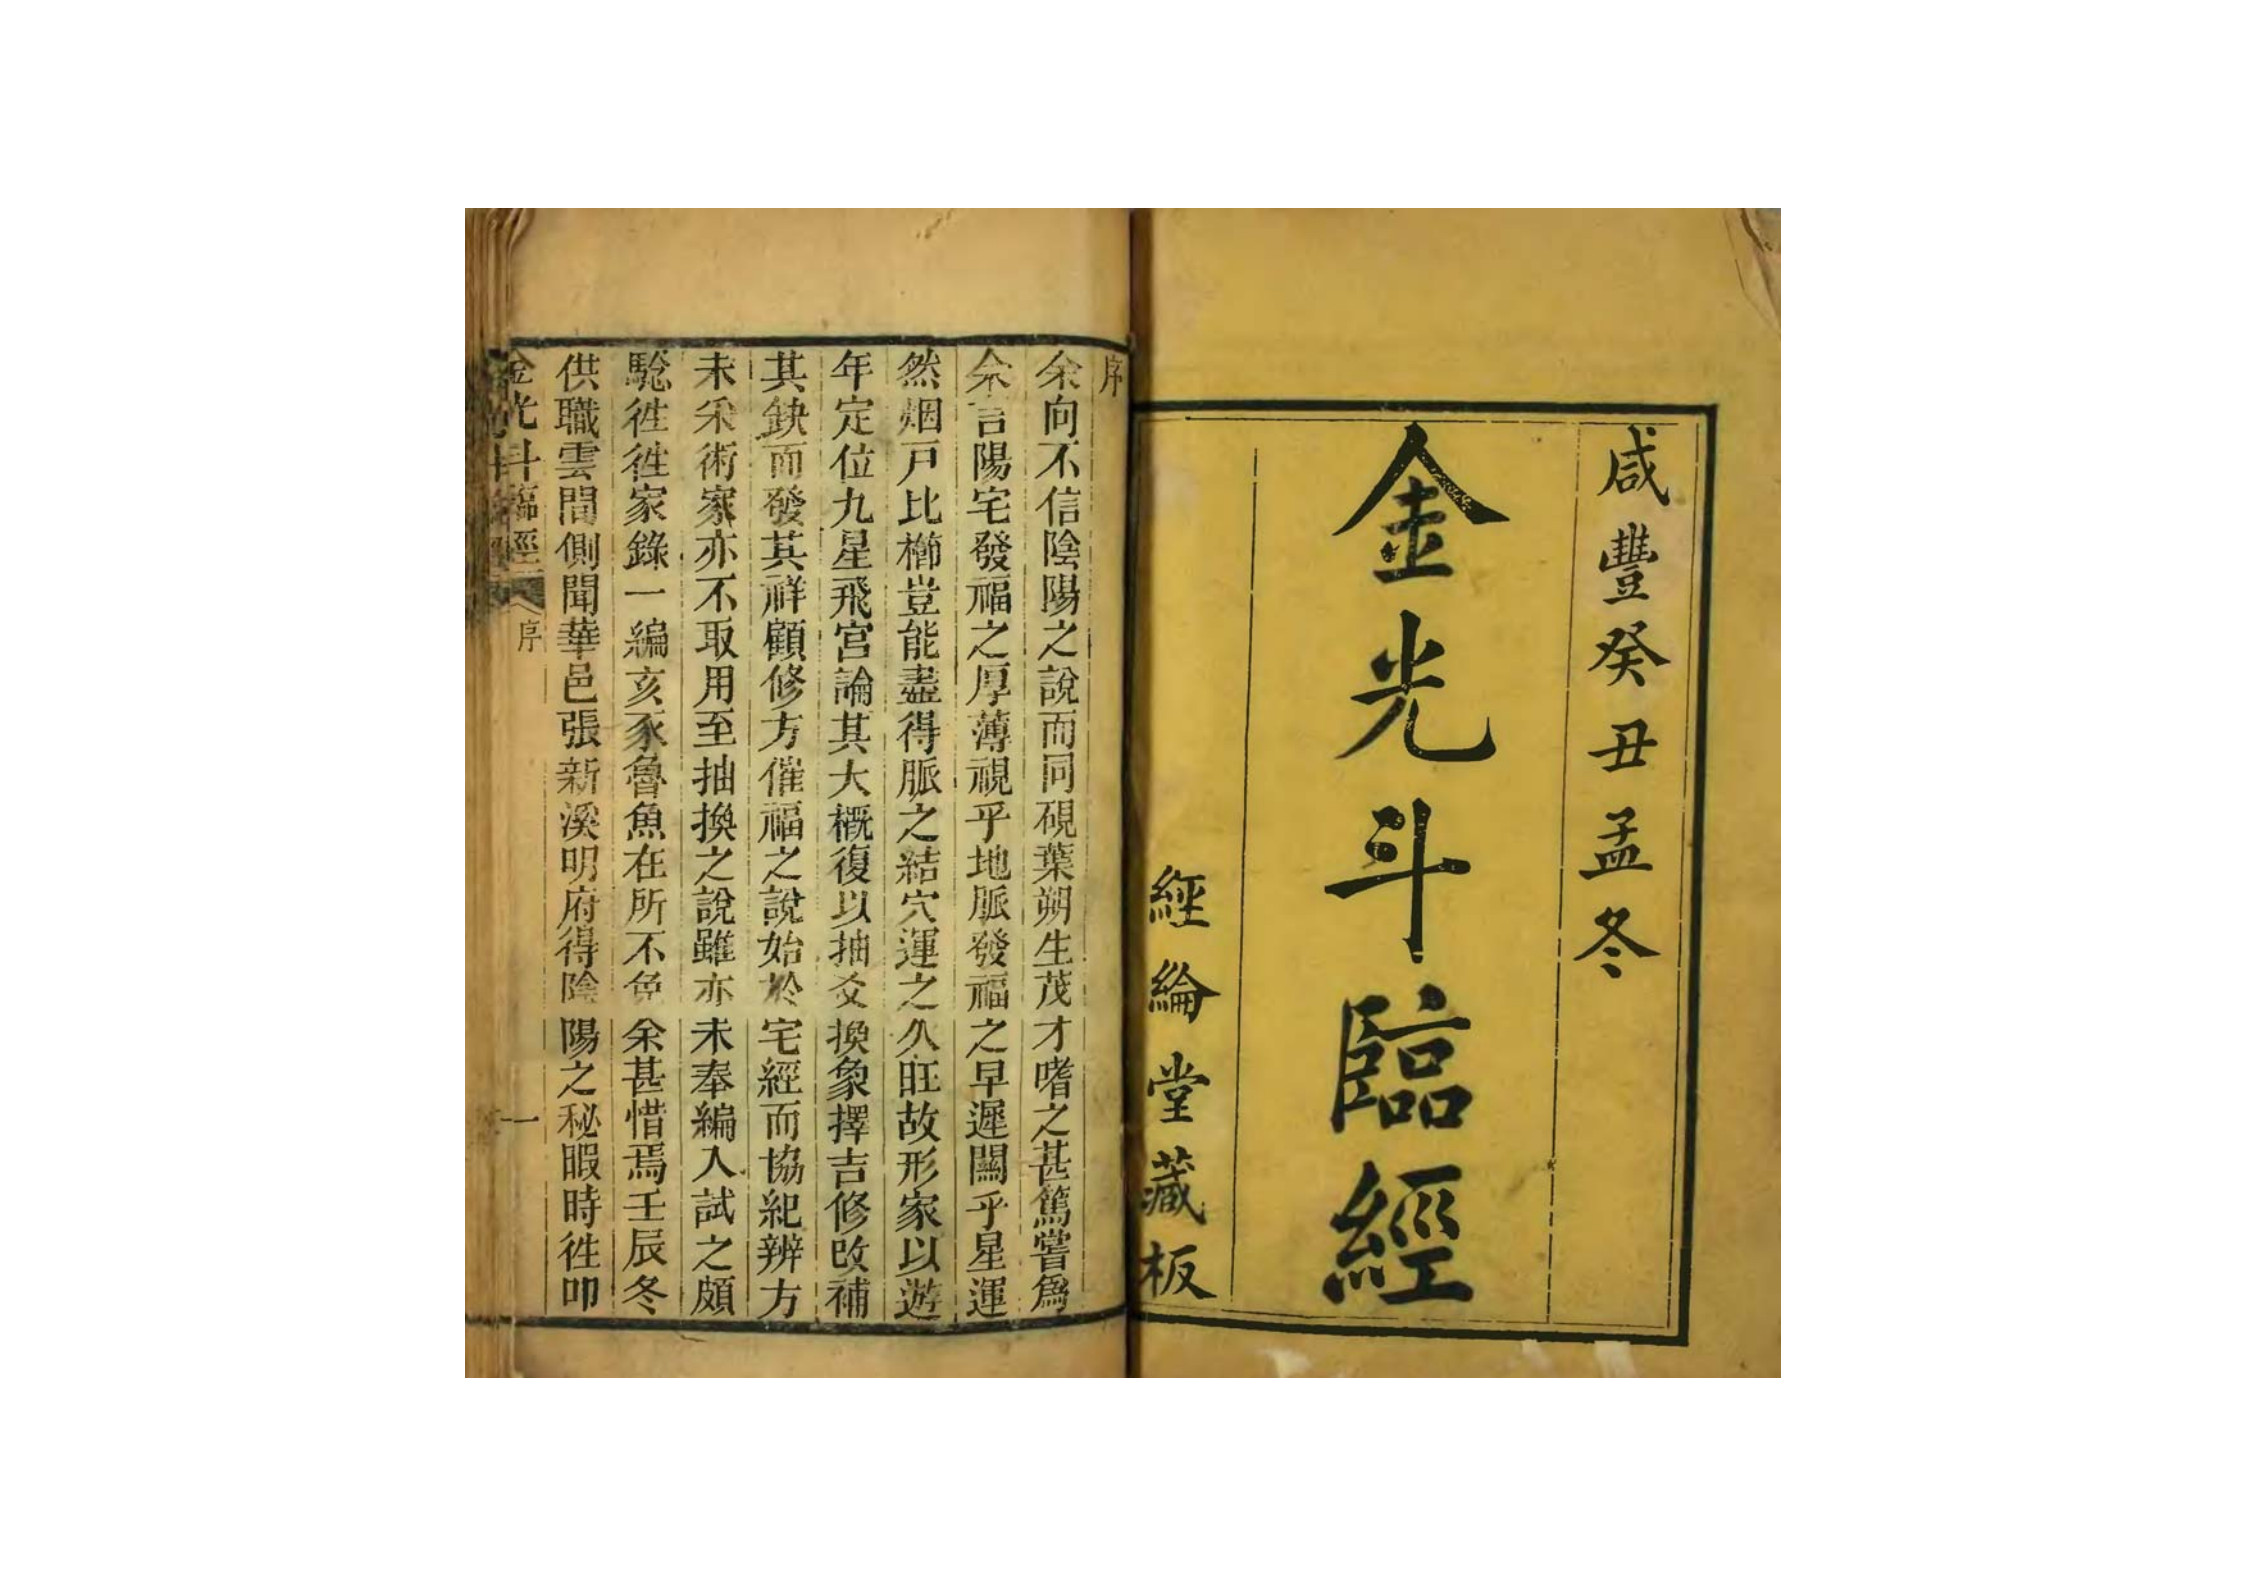 咸豐癸丑孟冬
金光斗臨經
經綸堂藏板
序
余向不信陰陽之說而同硯葉朔生茂才嗜之甚篤嘗爲
余言陽宅發福之厚薄視乎地脈發福之早遲關乎星運
然烟戸比櫛豈能盡得脈之結穴運之久旺故形家以遊
年定位九星飛宮論其大概復以抽爻換象擇吉修改補
其缺而發其祥顧修方催福之說始於宅經而協紀辨方
未采術家亦不取用至抽換之說雖亦未奉編入試之頗
騐徃徃家錄一編亥豕魯魚在所不免余甚惜焉壬辰冬
供職雲間側聞華邑張新溪明府得陰陽之秘暇時徃叩
金光斗臨經 序 一